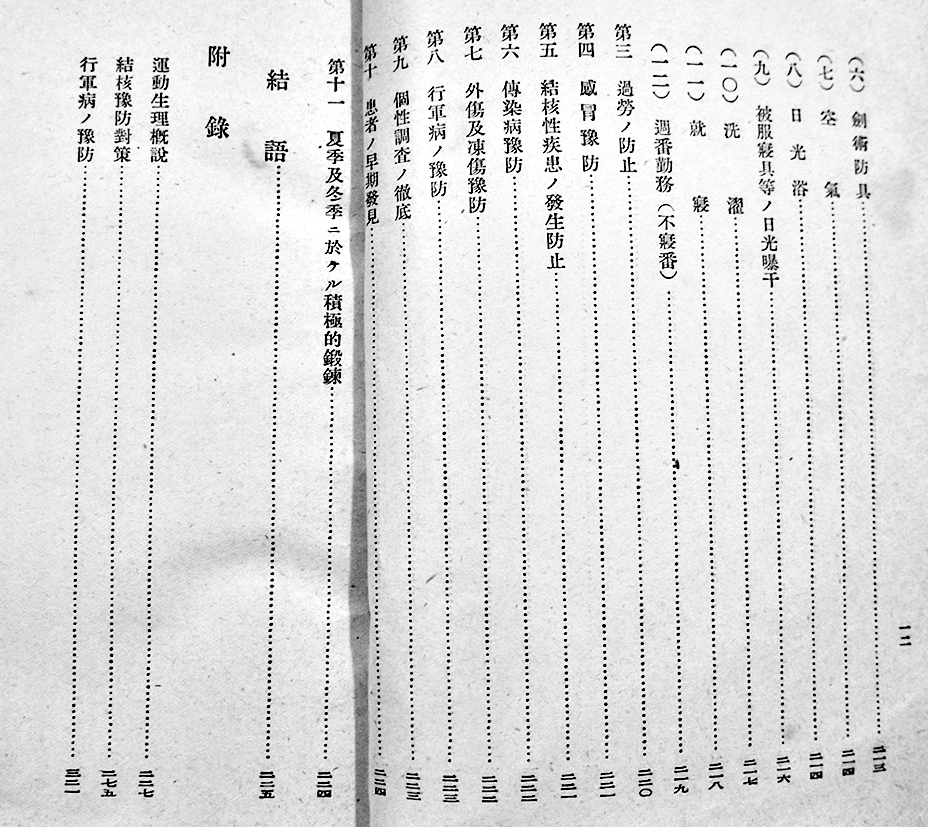 一二
(六) 劍術防具……二一三
(七) 空氣……二一四
(八) 日光浴……二一四
(九) 被服寢具等ノ日光曝干……二一六
(一〇) 洗濯……二一七
(一一) 就寢……二一八
(一二) 週番勤務(不寢番)……二一九
第三 過勞ノ防止……二二〇
第四 感冒豫防……二二一
第五 結核性疾患ノ發生防止……二二一
第六 傳染病豫防……二二二
第七 外傷及凍傷豫防……二二二
第八 行軍病ノ豫防……二二三
第九 個性調査ノ徹底……二二三
第十 患者ノ早期發見……二二四
第十一 夏季及冬季ニ於ケル積極的鍛鍊……二二四
結語……二二五
附錄
運動生理概說……二二七
結核豫防對策……二七五
行軍病ノ豫防……